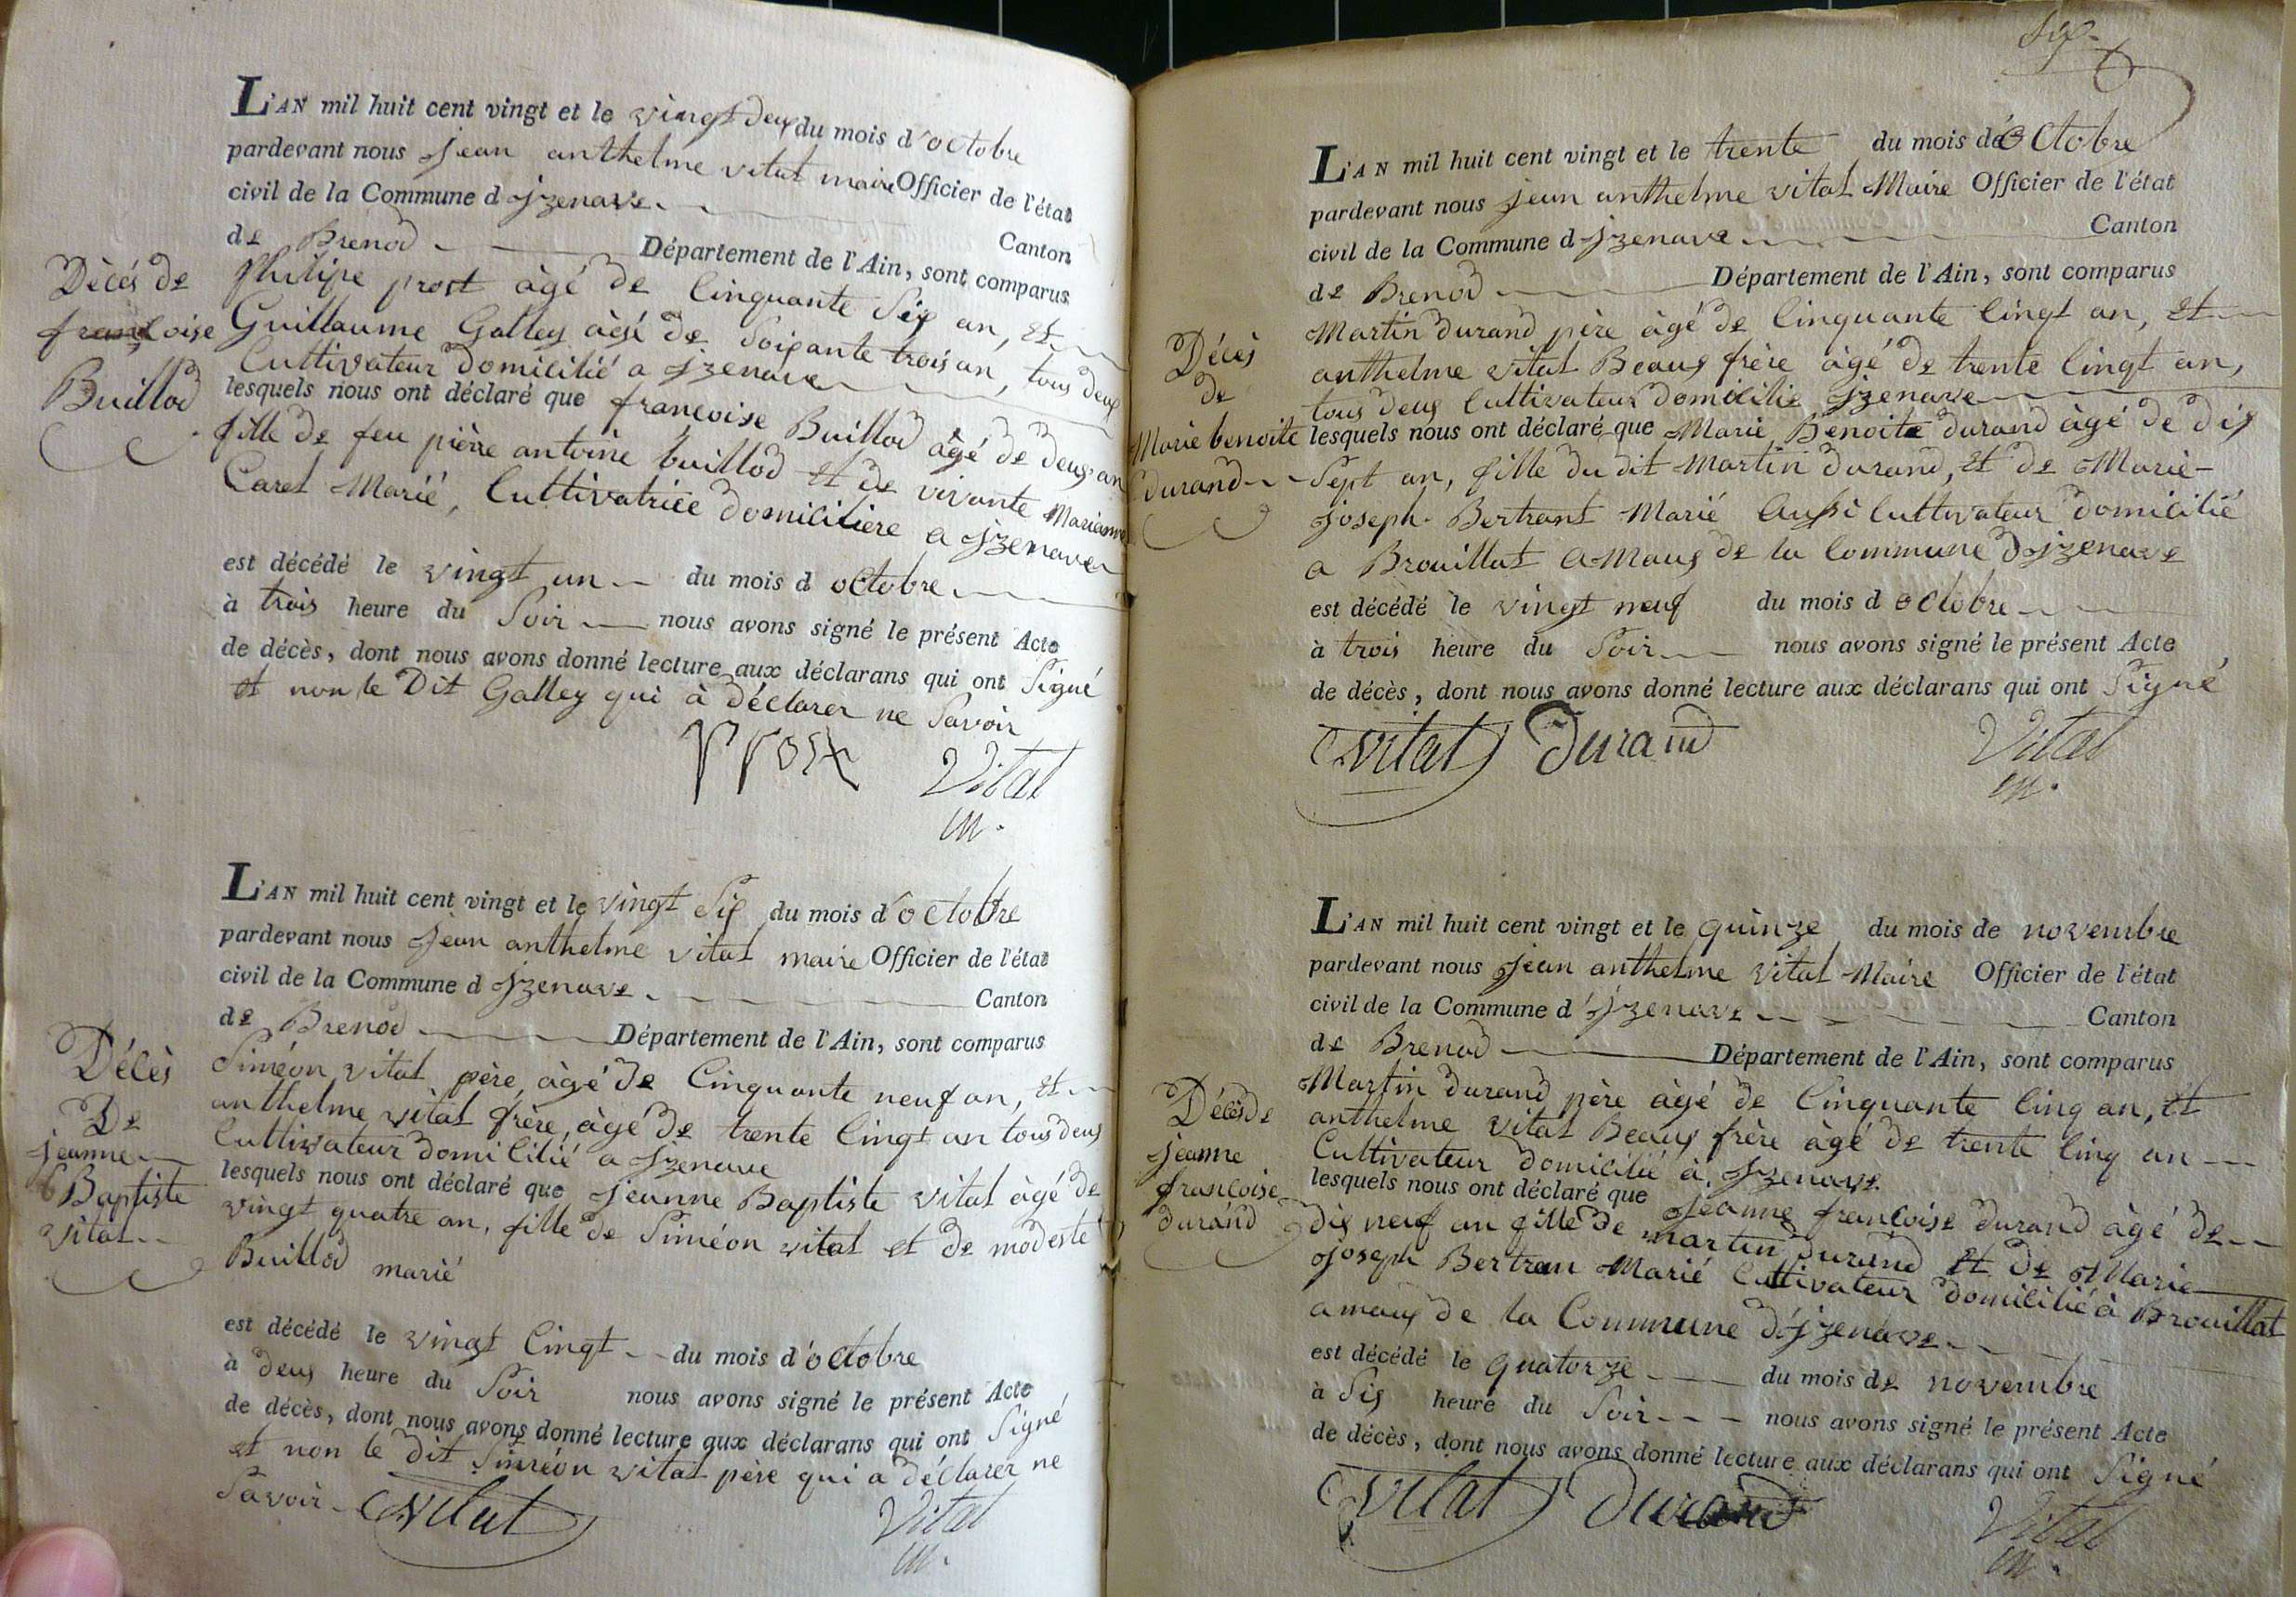 L'AN mil huit cent vingt et le vingt deux du mois d'octobre
pardevant nous jean anthelme vital maire Officier de l'état
civil de la Commune d jzenave
Canton
de Brenod Département de l'Ain, sont comparus
Décés de
françoise
Buillod
philipe prost âgé de Cinquante Six an, Et
Guillaume Galley âgé de Soixante trois an, tous deux
Cultivateur domicilié a jzenave
lesquels nous ont déclaré que françoise Buillod âgé de deux an
fille de feu pièrre antoine buillod et de vivante Marianne
Caret Marié, Cultivatrice domicilière a jzenave
est décédé le vingt un du mois d octobre
à trois heure du Soir nous avons signé le présent Acte
de décès, dont nous avons donné lecture aux déclarans qui ont Signé
et non le Dit Galley qui à déclarer ne Savoir
Prost Vital
m.
L'AN mil huit cent vingt et le vingt Six du mois d'octobre
pardevant nous jean anthelme vital maire Officier de l'état
civil de la Commune d jzenave
Canton
de Brenod Département de l'Ain, sont comparus
Décès
De
jeanne
Baptiste
vital
Siméon vital père, âgé de Cinquante neuf an, Et
anthelme vital frère, âgé de trente Cingt an tous deux
Cultivateur domicilié a jzenave
lesquels nous ont déclaré que jeanne Baptiste vital âgé de
vingt quatre an, fille de Siméon vital et de modeste
Buillod marié
est décédé le vingt Cingt du mois d'octobre
à deux heure du Soir nous avons signé le présent Acte
de décès, dont nous avons donné lecture aux déclarans qui ont Signé
et non le dit Siméon vital père qui a déclarer ne
Savoir vital Vital
m.
Six
L'AN mil huit cent vingt et le trente du mois dé Octobre
pardevant nous jean anthelme vital Maire Officier de l'état
civil de la Commune d jzenave
Canton
de Brenod Département de l'Ain, sont comparus
Décès
de
Marie benoite
durand
Martin durand père âgé de Cinquante Cingt an, Et
anthelme vital Beaux frère âgé de trente Cingt an,
tous deux Cultivateur domicilié jzenave
lesquels nous ont déclaré que Marie Benoite durand âgé de dix
Sept an, fille du dit Martin durand, Et de Marie-
joseph Bertrant Marié Aussi Cultivateur domicilié
a Brouillat Amaux de la Commune d jzenave
est décédé le vingt neuf du mois d octobre
à trois heure du Soir nous avons signé le présent Acte
de décès, dont nous avons donné lecture aux déclarans qui ont Signé
vital Durand Vital
m.
L'AN mil huit cent vingt et le quinze du mois de novembre
pardevant nous jean anthelme vital Maire Officier de l'état
civil de la Commune d'jzenave
Canton
de Brenod Département de l'Ain, sont comparus
Décès de
jeanne
françoise
durand
Martin durand père âgé de Cinquante Cinq an, Et
anthelme vital Beaux frère âgé de trente Cinq an
Cultivateur domicilié à jzenave
lesquels nous ont déclaré que jeanne françoise durand âgé de
dix neuf an fille de martin durand Et de Marie
joseph Bertran Marié Cultivateur domicilié à Brouillat
amaux de la Commune d'jzenave
est décédé le quatorze du mois de novembre
à Six heure du Soir nous avons signé le présent Acte
de décès, dont nous avons donné lecture aux déclarans qui ont Signé
vital Durand Vital
m.